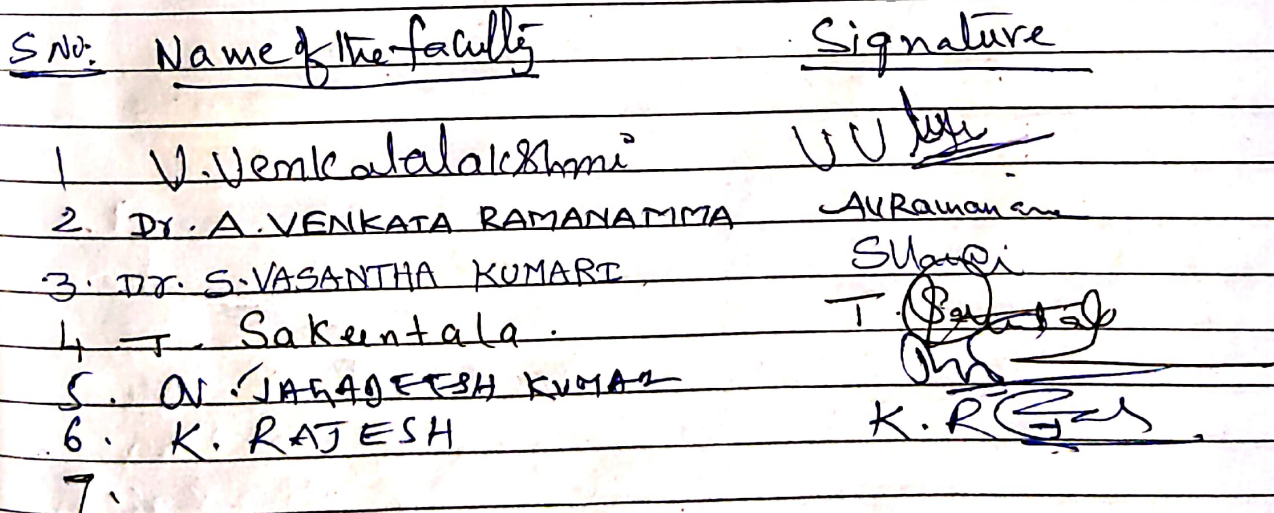 S No: Name of the faculty Signature
1 V. Venkatalakshmi VV
2. Dr. A. VENKATA RAMANAMMA AVRamanam
3. Dr. S. VASANTHA KUMARI
4 T. Sakuntala. T.
5. N. JAGADEESH KUMAR
6. K. RAJESH K. R
7.